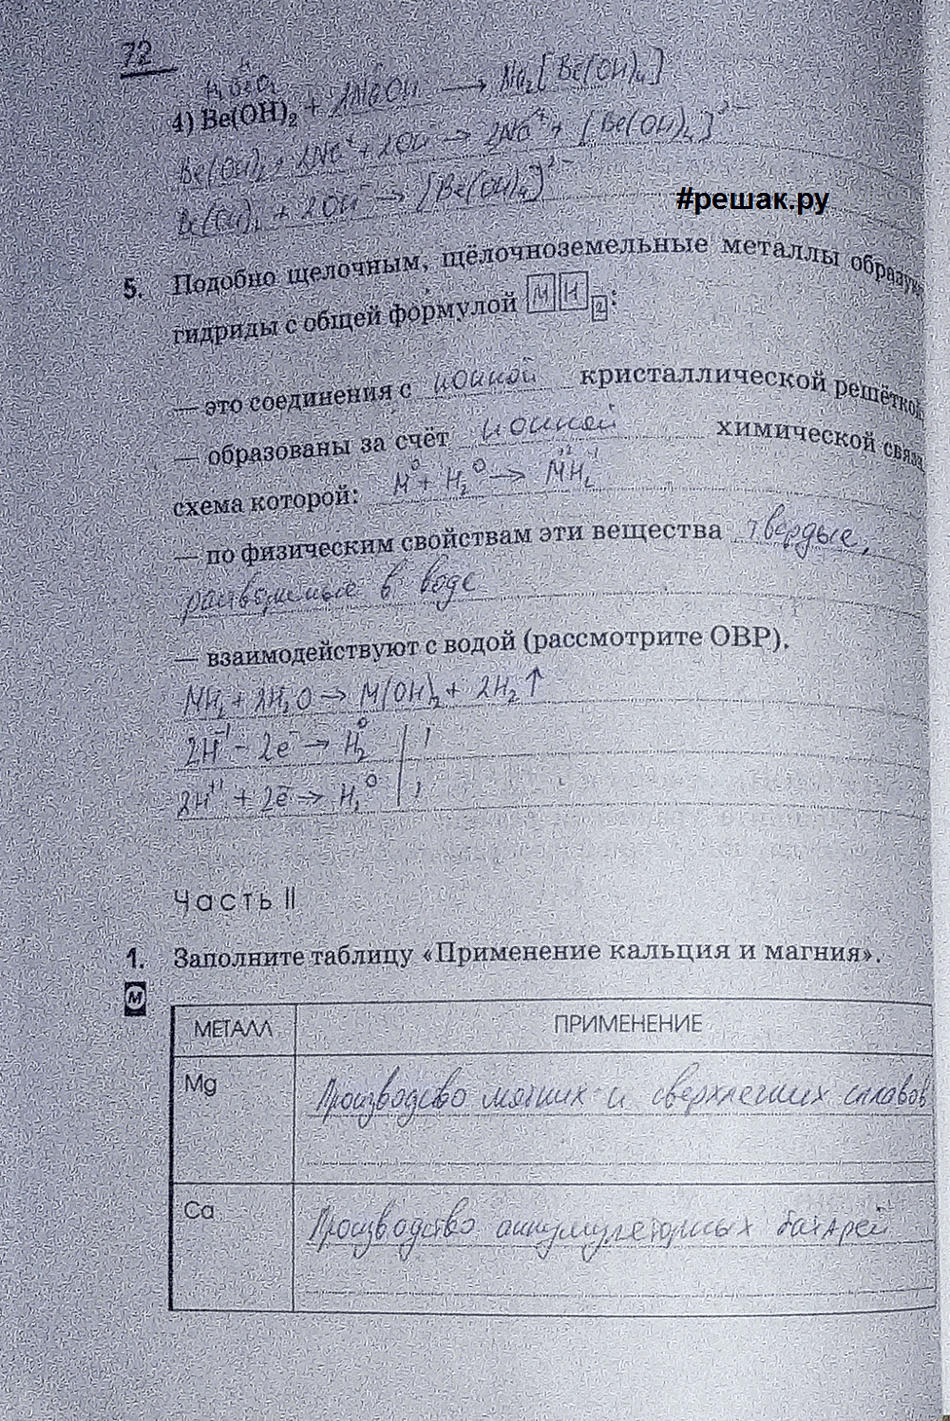 72
H₂BeO₂
4) Be(OH)₂ + 2NaOH → Na₂[Be(OH)₄]
Be(OH)₂ + 2Na⁺ + 2OH⁻ → 2Na⁺ + [Be(OH)₄]²⁻
Be(OH)₂ + 2OH⁻ → [Be(OH)₄]²⁻
#решак.ру
5. Подобно щелочным, щёлочноземельные металлы образую
гидриды с общей формулой M H 2 :
— это соединения с ионной кристаллической решёткой,
— образованы за счёт ионной химической связи,
схема которой: M⁰ + H₂⁰ → M⁺²H₂⁻¹
— по физическим свойствам эти вещества твёрдые,
растворимые в воде
— взаимодействуют с водой (рассмотрите ОВР).
MH₂ + 2H₂O → M(OH)₂ + 2H₂↑
2H⁻¹ - 2e⁻ → H₂⁰ | 1
2H⁺¹ + 2e⁻ → H₂⁰ | 1
Часть II
1. Заполните таблицу «Применение кальция и магния».
М
МЕТАЛЛ ПРИМЕНЕНИЕ
Mg Производство лёгких и сверхлегких сплавов
Ca Производство аккумуляторных батарей